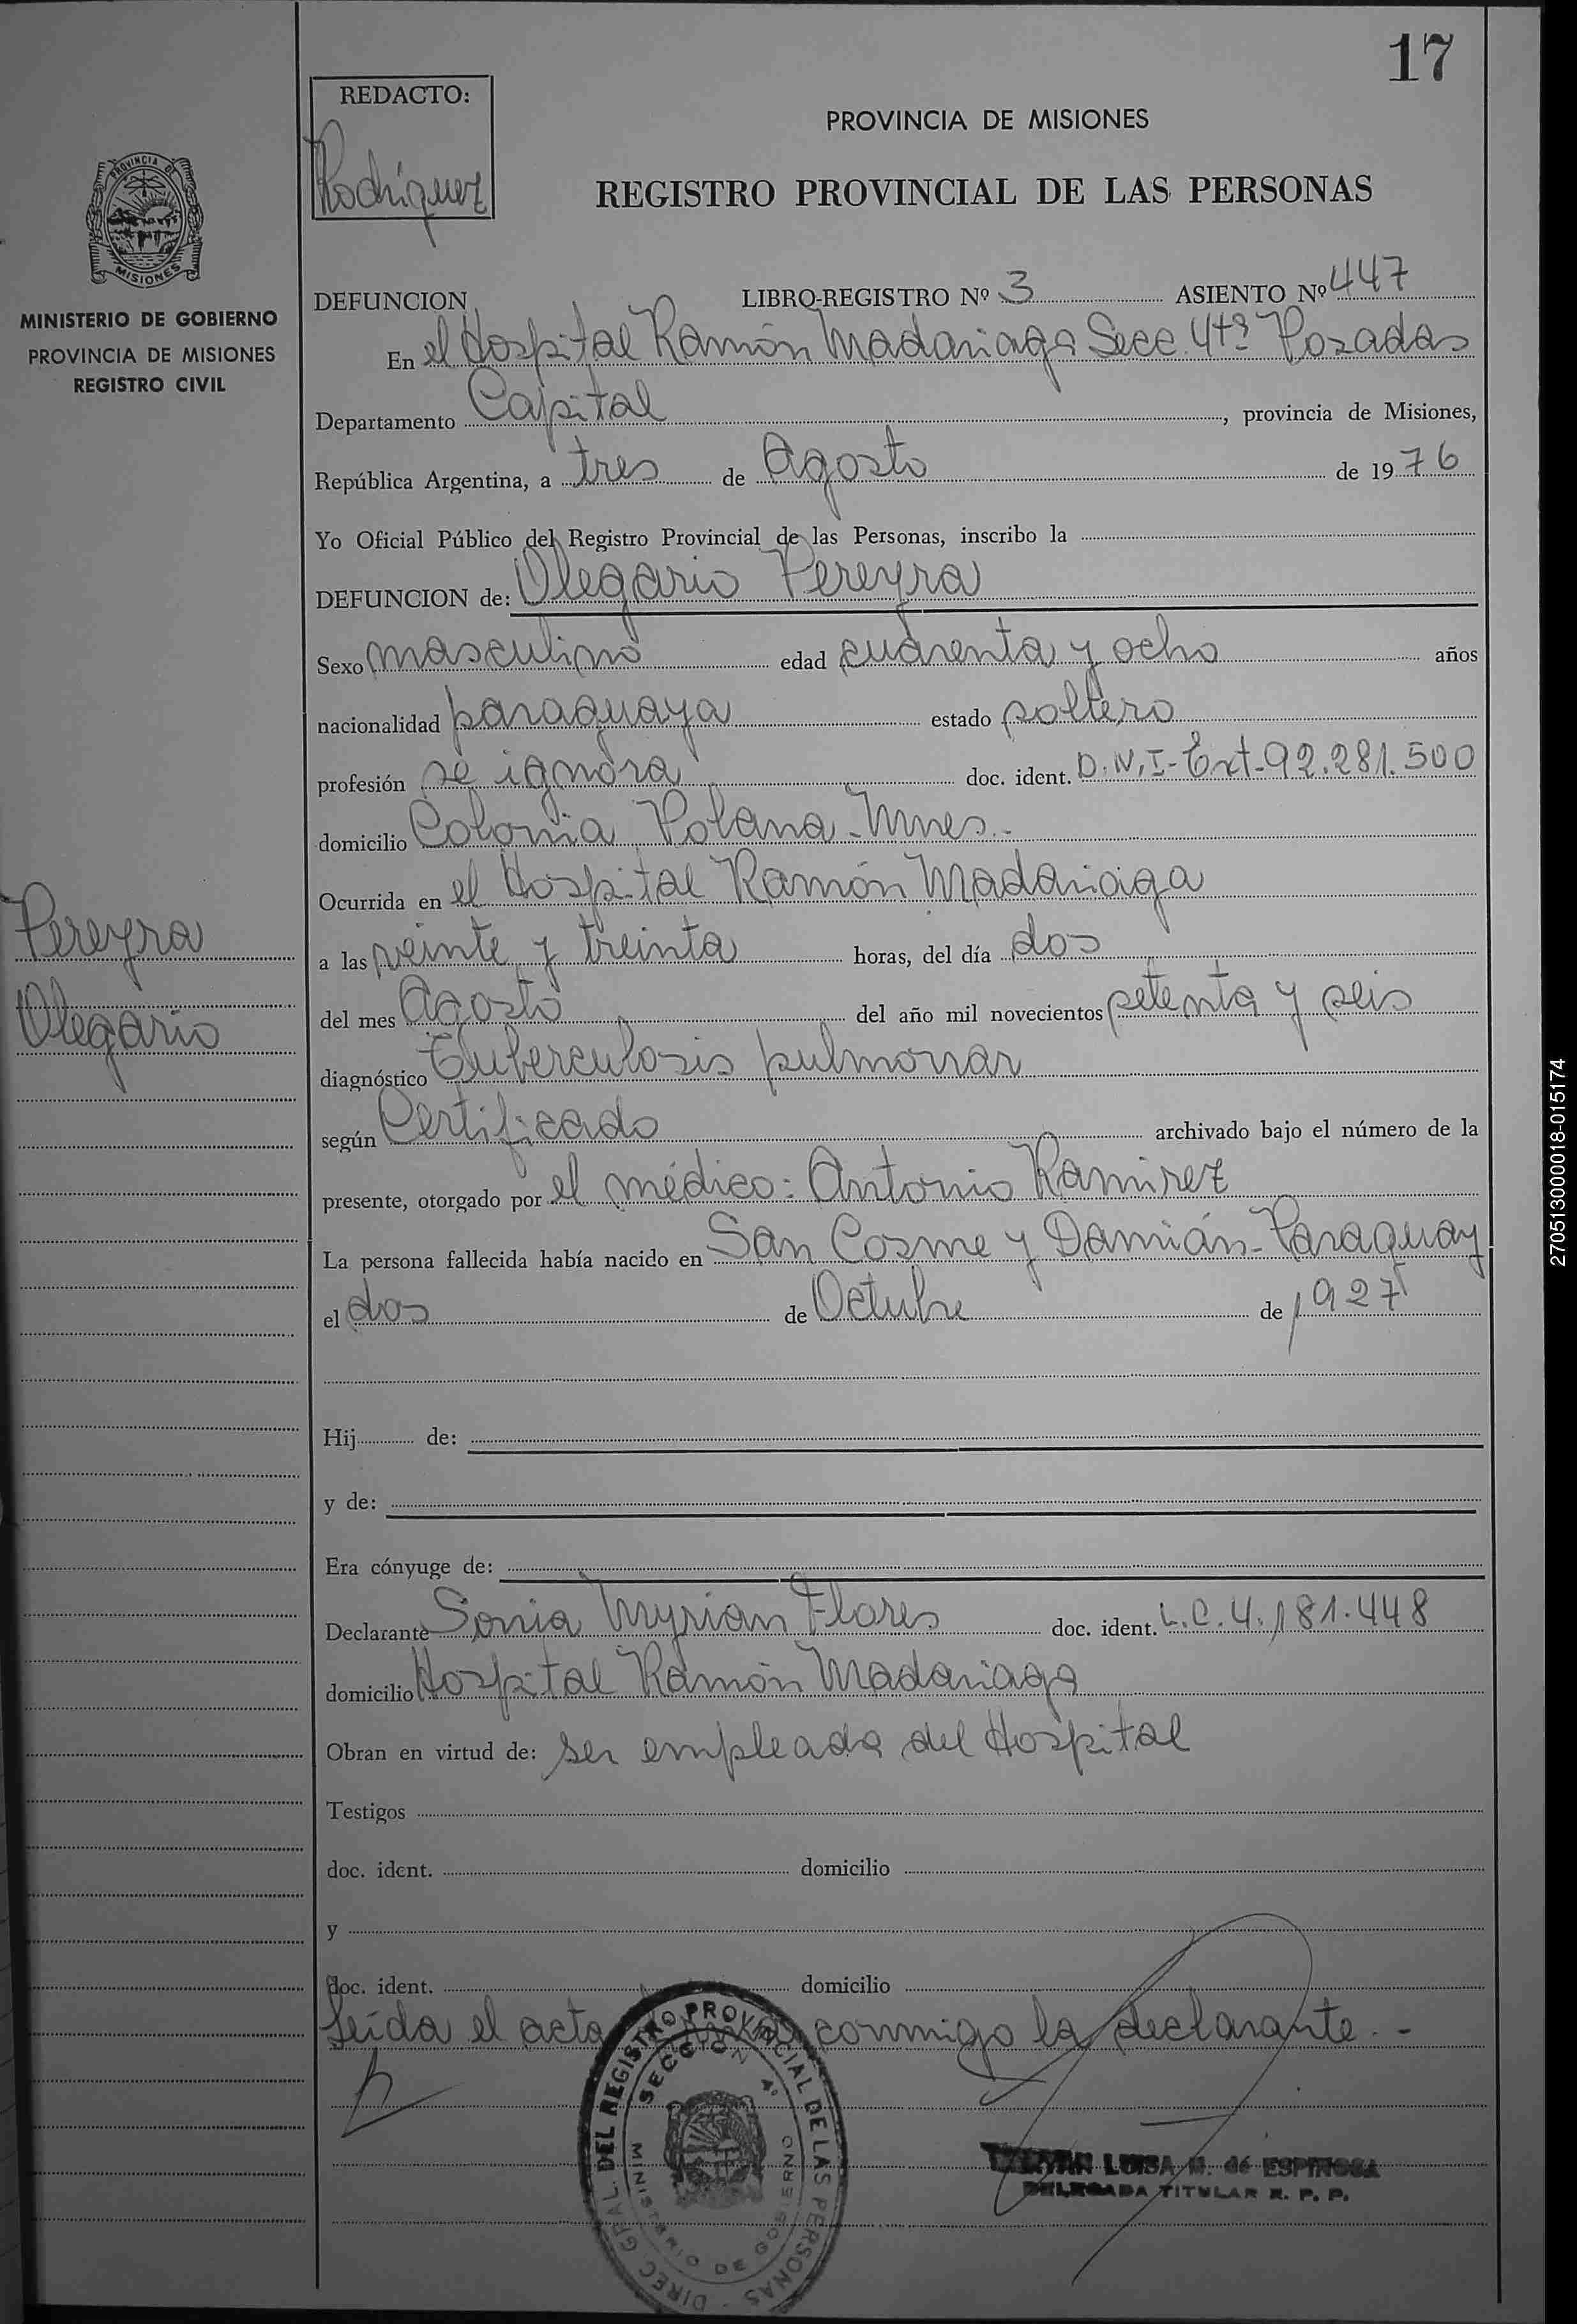 17
REDACTO:
Rodríguez
PROVINCIA DE MISIONES
REGISTRO PROVINCIAL DE LAS PERSONAS
PROVINCIA DE
MISIONES
MINISTERIO DE GOBIERNO
PROVINCIA DE MISIONES
REGISTRO CIVIL
DEFUNCION LIBRO-REGISTRO Nº 3 ASIENTO Nº 447
En el Hospital Ramón Madariaga Secc. 4ta Posadas
Departamento Capital, provincia de Misiones,
República Argentina, a tres de Agosto de 1976
Yo Oficial Público del Registro Provincial de las Personas, inscribo la
DEFUNCION de: Olegario Pereyra
Sexo masculino edad cuarenta y ocho años
nacionalidad paraguaya estado soltero
profesión se ignora doc. ident. D.N.I-Ext-92.281.500
domicilio Colonia Polana-Mnes.-
Ocurrida en el Hospital Ramón Madariaga
Pereyra
Olegario
a las veinte y treinta horas, del día dos
del mes Agosto del año mil novecientos setenta y seis
diagnóstico Tuberculosis pulmonar
según Certificado archivado bajo el número de la
presente, otorgado por el médico: Antonio Ramirez
La persona fallecida había nacido en San Cosme y Damián-Paraguay
el dos de Octubre de 1927
Hij de:
y de:
Era cónyuge de:
Declarante Sonia Myrian Flores doc. ident. L.C.4.181.448
domicilio Hospital Ramón Madariaga
Obran en virtud de: ser empleada del Hospital
Testigos
doc. ident. domicilio
y
doc. ident. domicilio
Leída el acta conmigo la declarante.-
DIREC. GRAL. DEL REGISTRO PROVINCIAL DE LAS PERSONAS
SECCION 4º
MINISTERIO DE GOBIERNO
LUISA M. de ESPINOSA
DELEGADA TITULAR R. P. P.
270513000018-015174